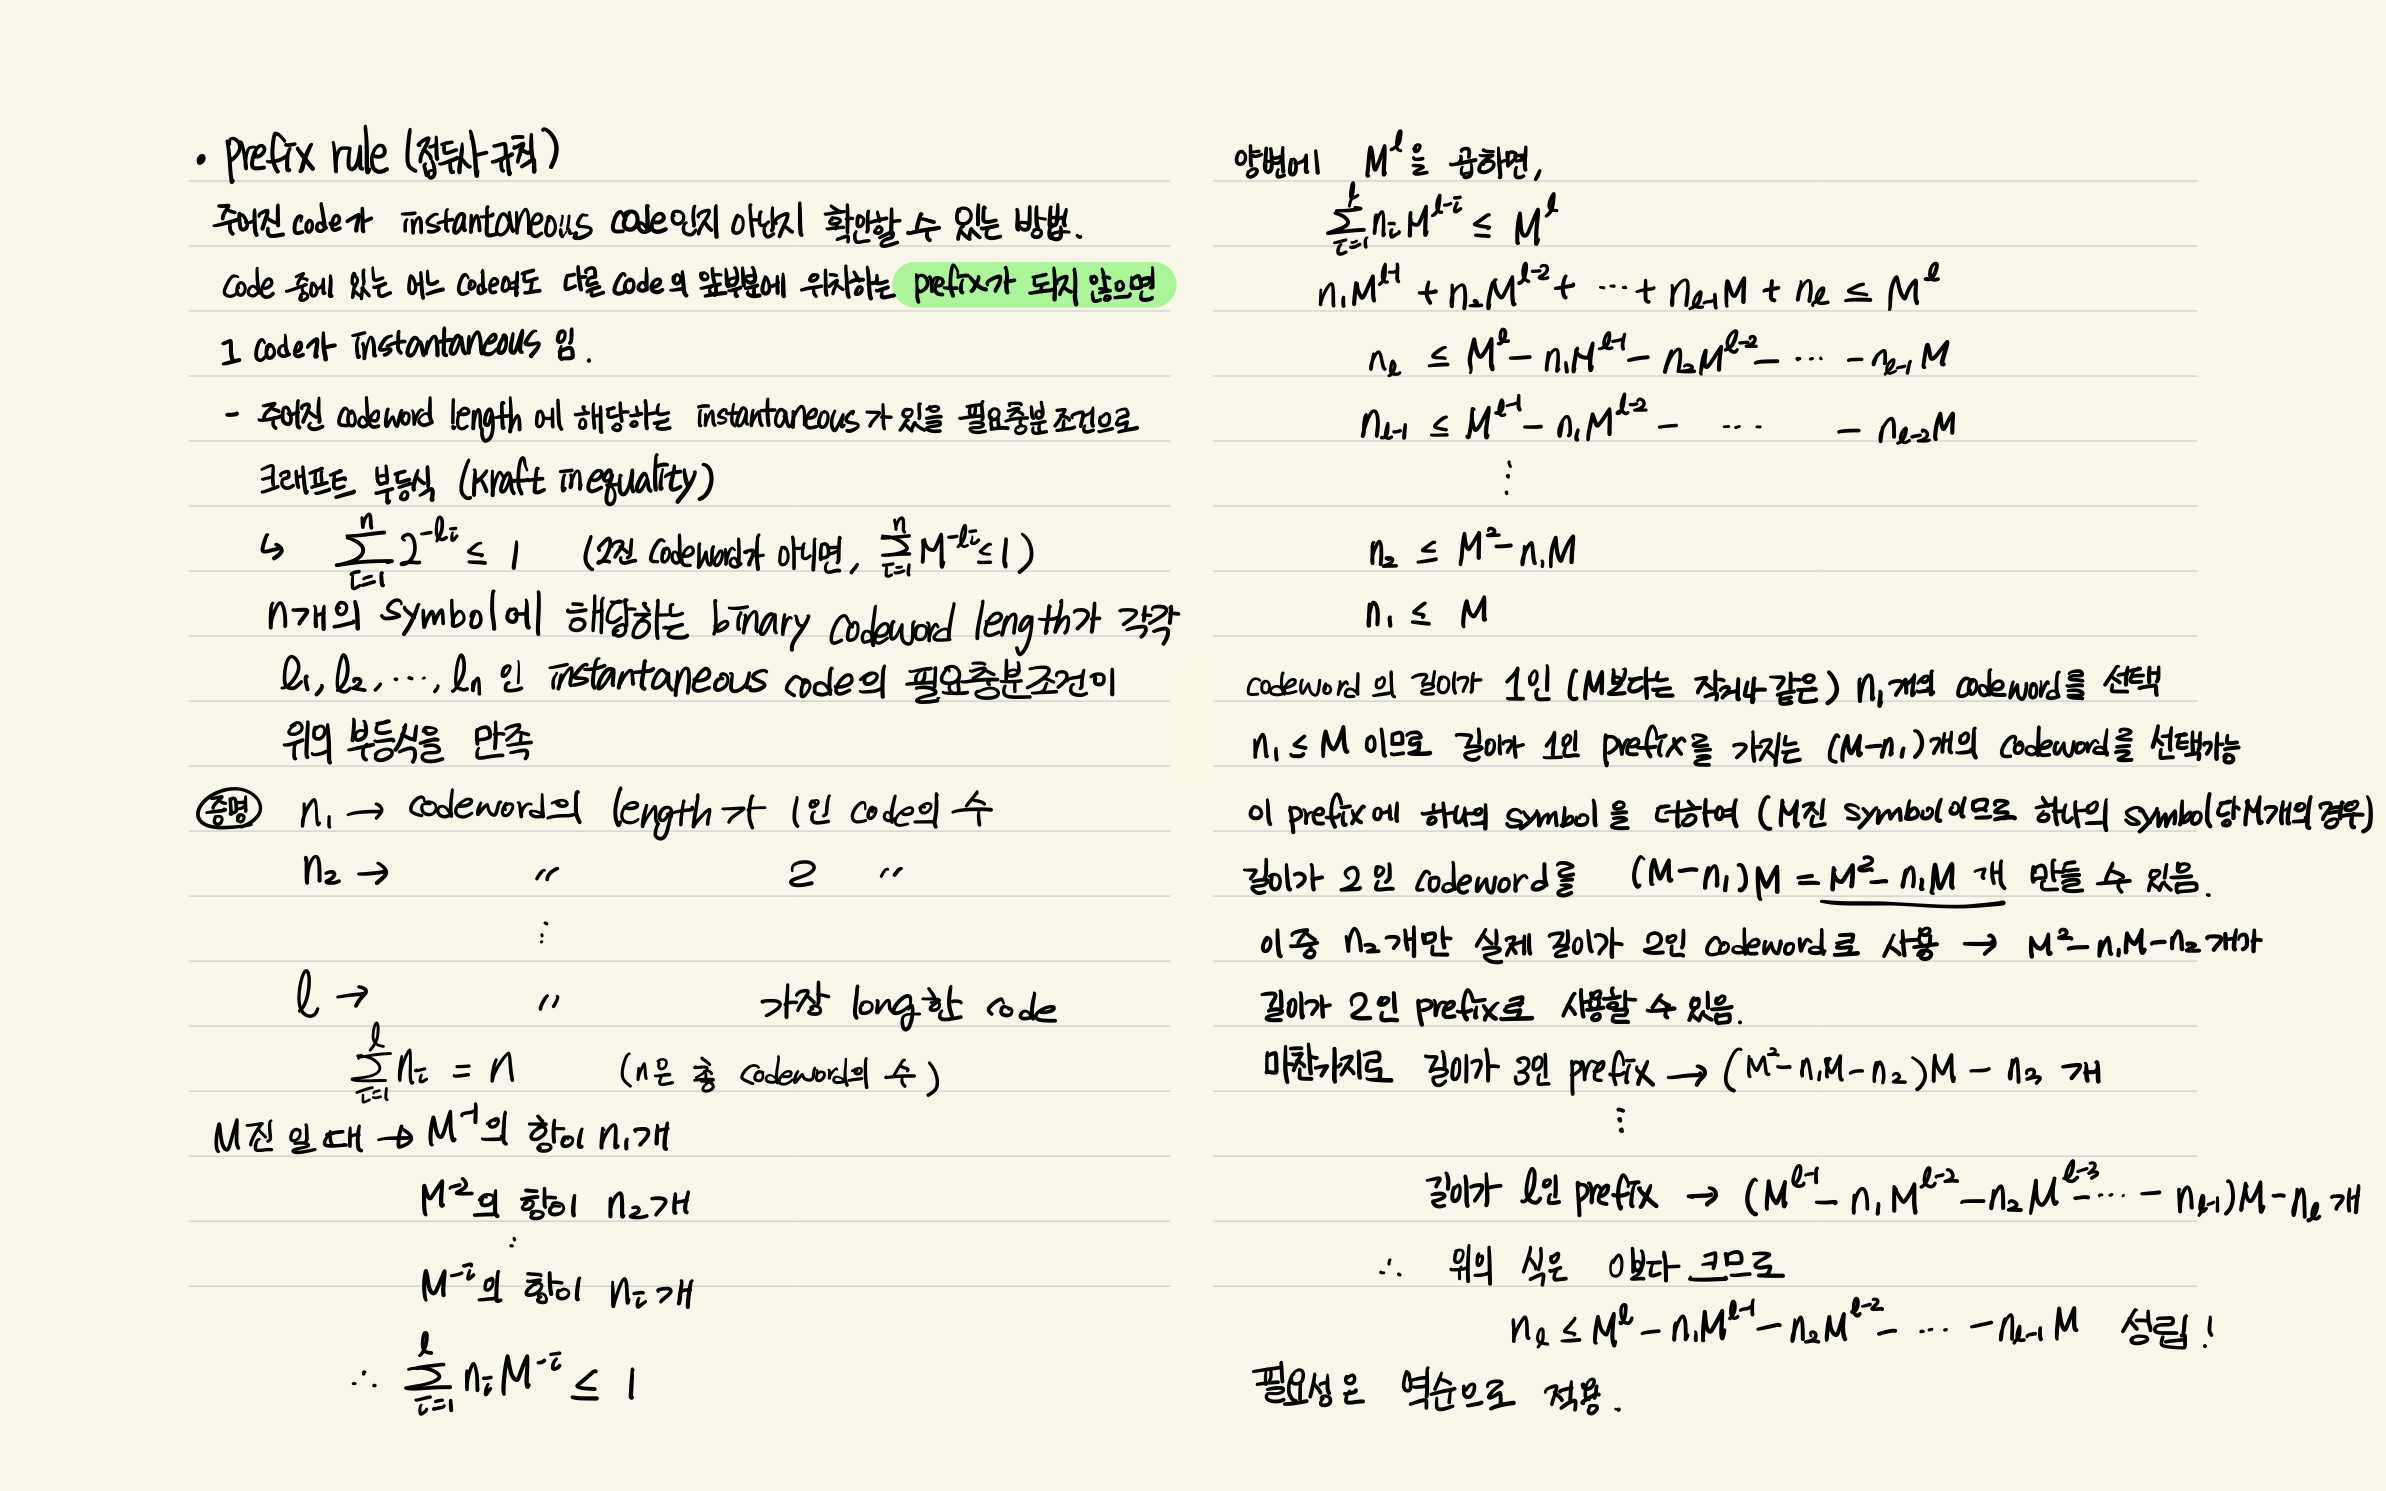 • prefix rule (접두사 규칙)
주어진 code가 instantaneous code인지 아닌지 확인할 수 있는 방법.
code 중에 있는 어느 code여도 다른 code의 앞부분에 위치하는 prefix가 되지 않으면
그 code가 instantaneous 임.
- 주어진 codeword length에 해당하는 instantaneous가 있을 필요충분조건으로
크래프트 부등식 (Kraft inequality)
↳ \sum_{i=1}^{n} 2^{-l_i} ≤ 1 (2진 codeword가 아니면, \sum_{i=1}^{n} M^{-l_i} ≤ 1)
n개의 symbol에 해당하는 binary codeword length가 각각
l₁, l₂, ⋯, lₙ 인 instantaneous code의 필요충분조건이
위의 부등식을 만족
증명 n₁ → codeword의 length가 1인 code의 수
n₂ → 〃 2 〃
⋮
l → 〃 가장 long한 code
\sum_{i=1}^{l} n_i = n (n은 총 codeword의 수)
M진 일 때 → M^{-1}의 항이 n₁개
M^{-2}의 항이 n₂개
⋮
M^{-i}의 항이 n_i개
∴ \sum_{i=1}^{l} n_i M^{-i} ≤ 1
양변에 M^l을 곱하면,
\sum_{i=1}^{l} n_i M^{l-i} ≤ M^l
n₁M^{l-1} + n₂M^{l-2} + ⋯ + n_{l-1}M + n_l ≤ M^l
n_l ≤ M^l - n₁M^{l-1} - n₂M^{l-2} - ⋯ - n_{l-1}M
n_{l-1} ≤ M^{l-1} - n₁M^{l-2} - ⋯ - n_{l-2}M
⋮
n₂ ≤ M² - n₁M
n₁ ≤ M
codeword의 길이가 1인 (M보다는 작거나 같은) n₁개의 codeword를 선택
n₁ ≤ M 이므로 길이가 1인 prefix를 가지는 (M-n₁)개의 codeword를 선택가능
이 prefix에 하나의 symbol을 더하여 (M진 symbol이므로 하나의 symbol당 M개의 경우)
길이가 2인 codeword를 (M-n₁)M = M² - n₁M 개 만들 수 있음.
이 중 n₂개만 실제 길이가 2인 codeword로 사용 → M² - n₁M - n₂개가
길이가 2인 prefix로 사용할 수 있음.
마찬가지로 길이가 3인 prefix → (M² - n₁M - n₂)M - n₃ 개
⋮
길이가 l인 prefix → (M^{l-1} - n₁M^{l-2} - n₂M^{l-3} - ⋯ - n_{l-1})M - n_l 개
∴ 위의 식은 0보다 크므로
n_l ≤ M^l - n₁M^{l-1} - n₂M^{l-2} - ⋯ - n_{l-1}M 성립!
필요성은 역순으로 적용.